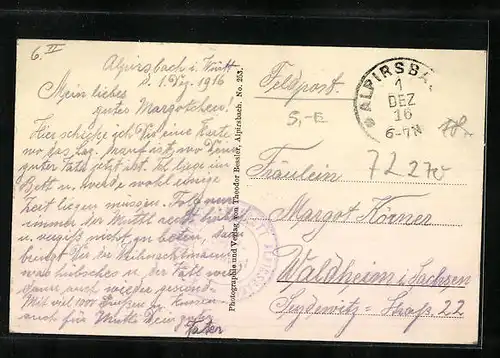 6. II
Alpirsbach i. Württ
d. 1. Dez. 1916
Mein liebes
gutes Margotchen!
Hier schicke ich Dir eine Karte
wo das Laz. drauf ist, wo Dein
guter Vater jetzt ist. Ich liege im
Bett u. werde wohl einige
Zeit liegen müssen. Folg nur
immer der Mutti recht
u. vergiß nicht zu beten, das
bringt Dir der Weihnachtsmann
was hübsches u. der Vati
dann auch wieder gesund.
Mit viel 1000 Grüßen u. Küssen
auch für Mutti Dein guter
Vater
Photographie und Verlag von Theodor Bessler, Alpirsbach. No. 253.
Feldpost.
ALPIRSBA
1
DEZ
16
6-7N
5,-E
78.-
72270
Fräulein
Margot Körner
Waldheim i. Sachsen
Straße 22